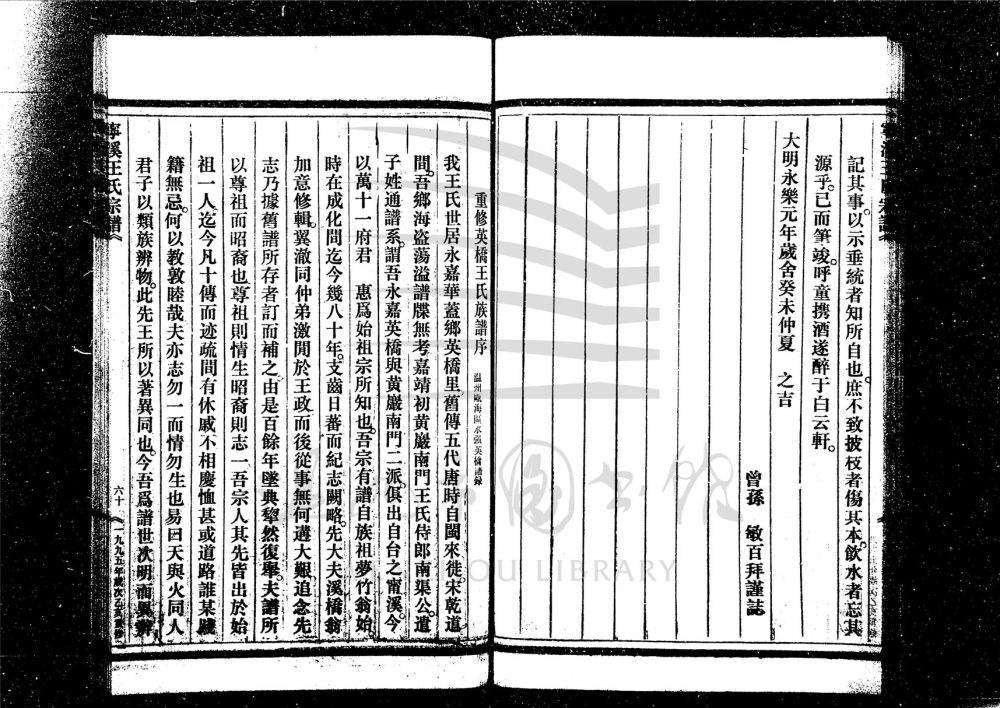 記其事以示垂統者知所自也庶不致披枝者傷其本飲水者忘其
源乎已而筆竣呼童攜酒遂醉于白云軒
大明永樂元年歲舍癸未仲夏　之吉
曾孫　敏百拜謹誌
重修英橋王氏族譜序
溫州甌海區永強英橋譜錄
我王氏世居永嘉華蓋鄉英橋里舊傳五代唐時自閩來徙宋乾道
間吾鄉海盗蕩溢譜牒無考嘉靖初黄巖南門王氏侍郎南渠公遣
子姓通譜系謂吾永嘉英橋與黄巖南門二派俱出自台之甯溪今
以萬十一府君　惠爲始祖宗所知也吾宗有譜自族祖夢竹翁始
時在成化間迄今幾八十年支齒日蕃而紀志闕略先大夫溪橋翁
加意修輯翼澈同仲弟激閒於王政而後從事無何遘大艱追念先
志乃據舊譜所存者訂而補之由是百餘年墜典犂然復舉夫譜所
以尊祖而昭裔也尊祖則情生昭裔則志一吾宗人其先皆出於始
祖一人迄今凡十傳而迹疏間有休戚不相慶恤甚或道路誰某踐
籍無忌何以教敦睦哉夫亦志勿一而情勿生也易曰天與火同人
君子以類族辨物此先王所以著異同也今吾爲譜世次明而異辨
寧溪王氏宗譜
六十
一九九五年歲次乙亥重修
LIBRARY